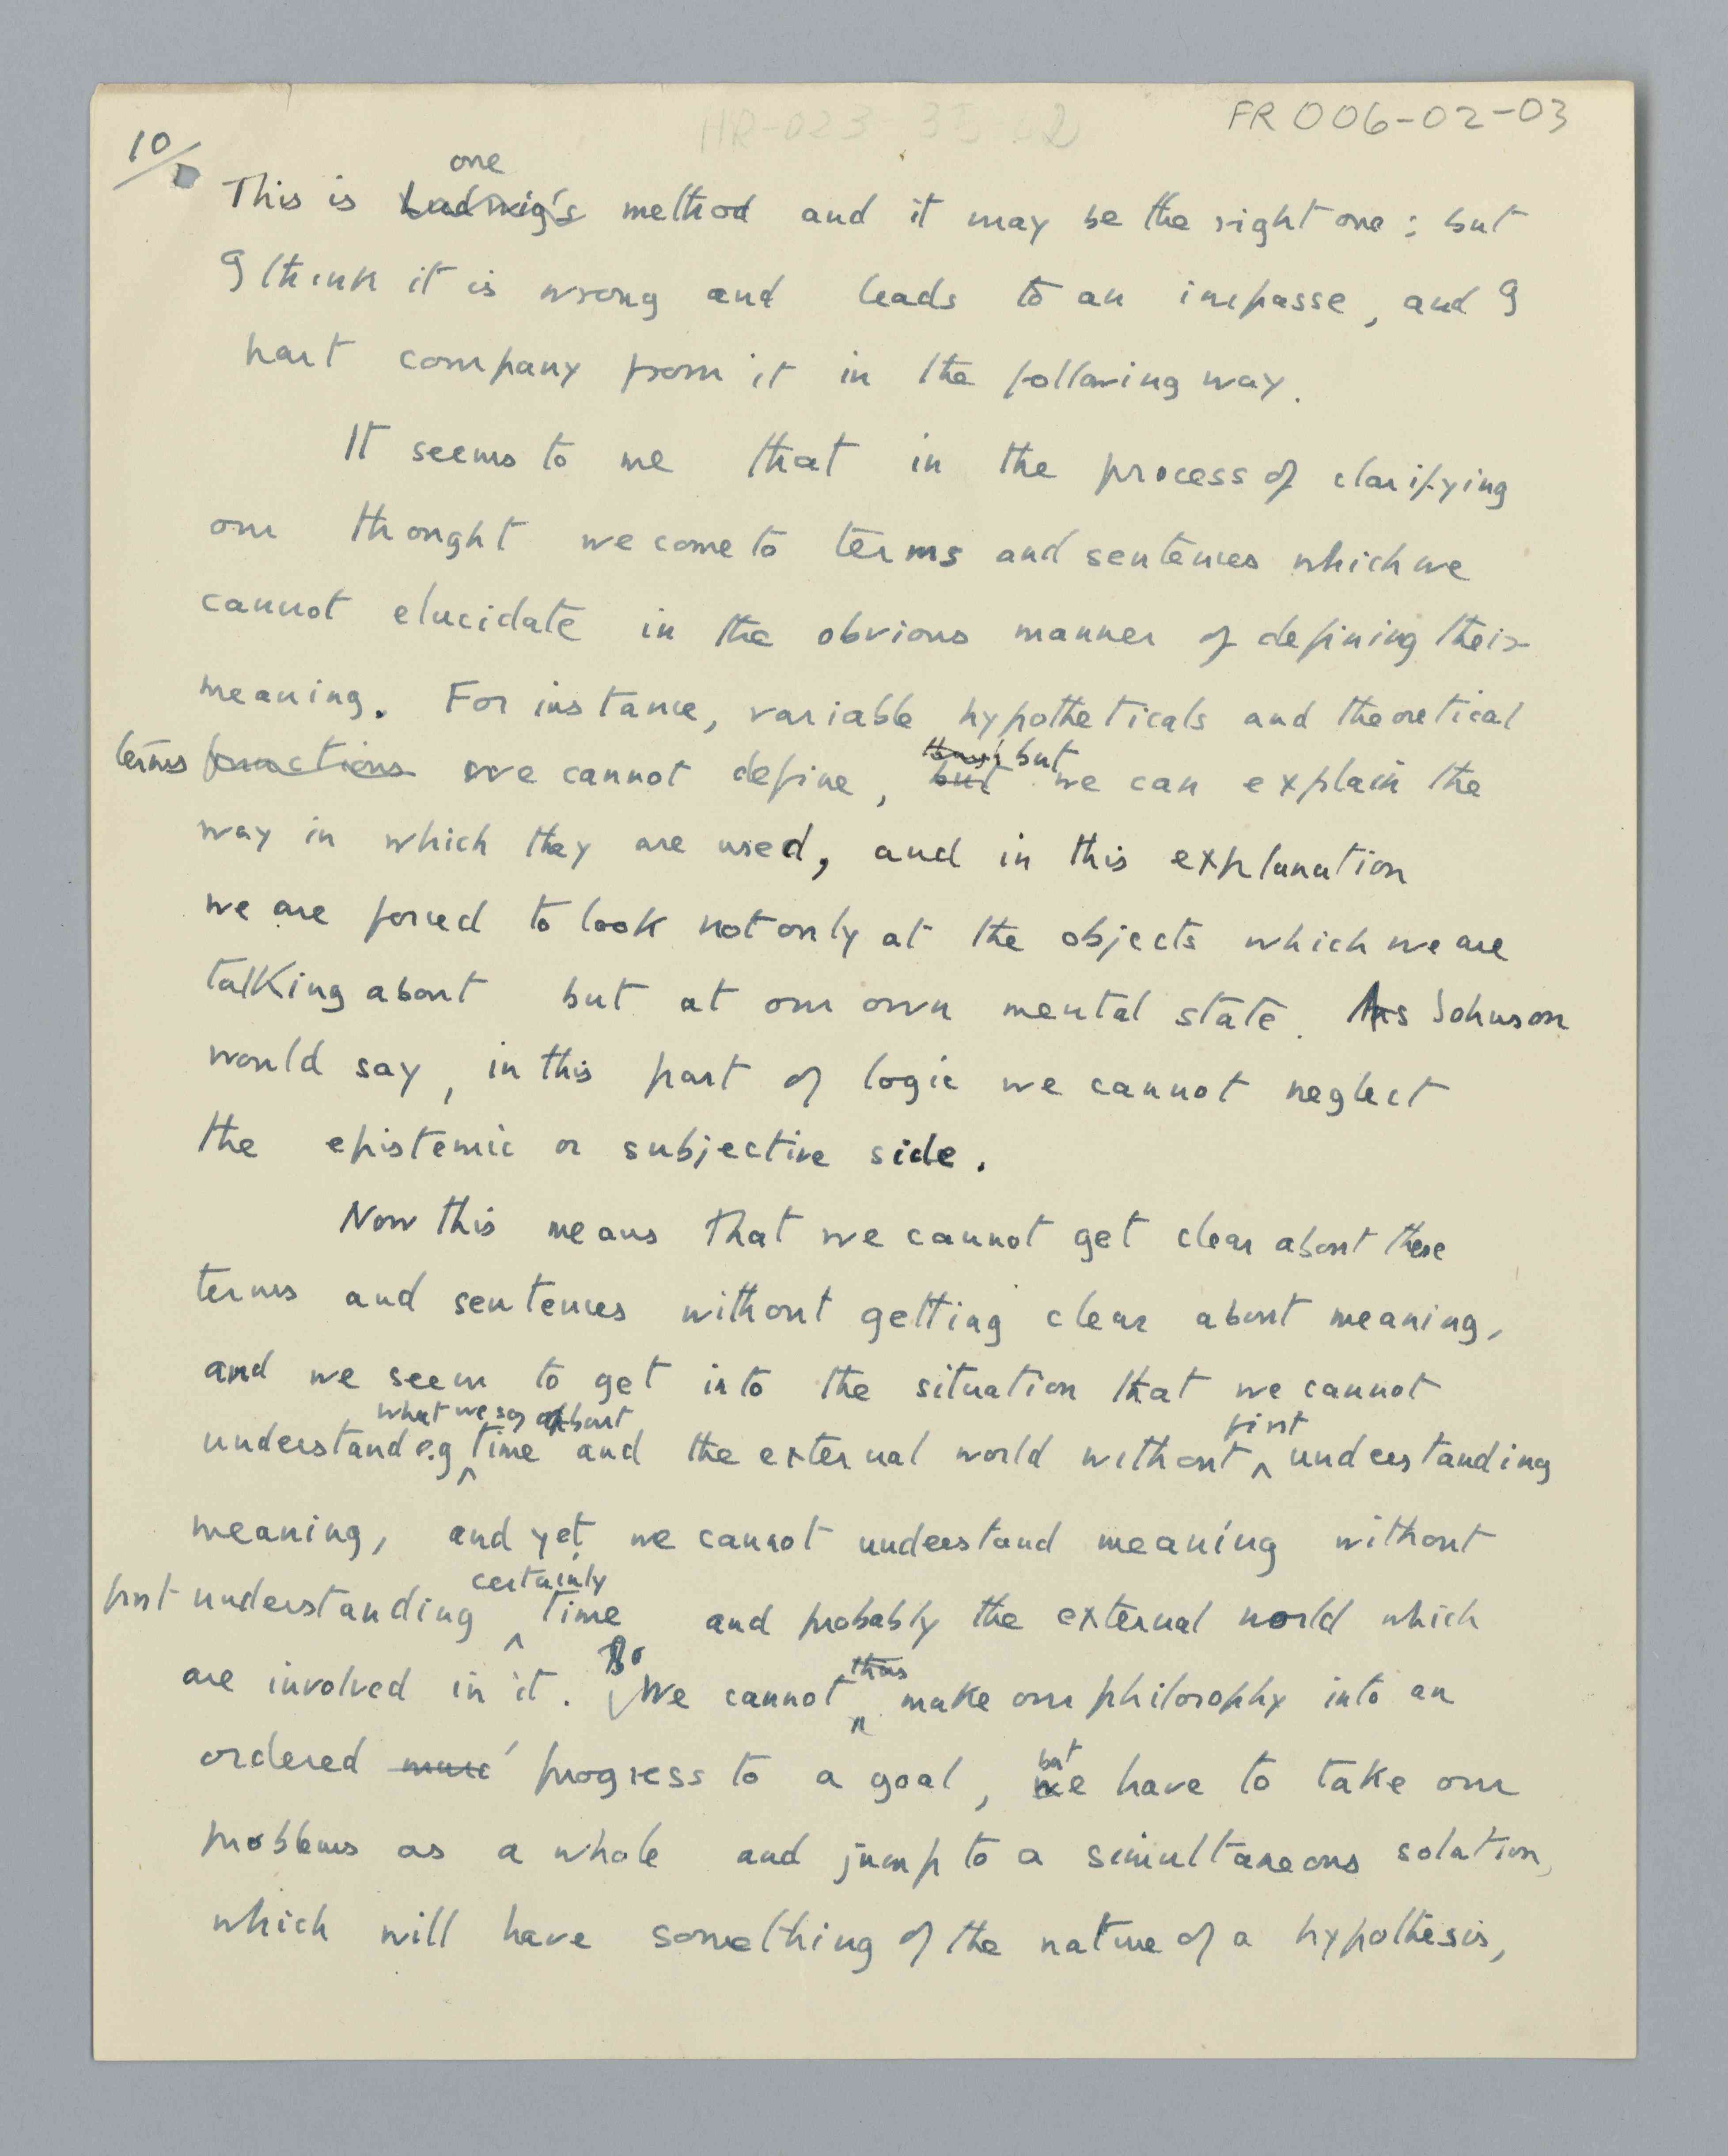 FR 006-02-03
HR-023-
10/
one
This is Ludwig's method and it may be the right one : but
I think it is wrong and leads to an impasse, and I
part company from it in the following way.
It seems to me that in the process of clarifying
our thought we come to terms and sentences which we
cannot elucidate in the obvious manner of defining their
meaning. For instance, variable hypotheticals and theoretical
but
terms functions we cannot define, but we can explain the
way in which they are used, and in this explanation
we are forced to look not only at the objects which we are
talking about but at our own mental state. As Johnson
would say, in this part of logic we cannot neglect
the epistemic or subjective side.
Now this means that we cannot get clear about these
terms and sentences without getting clear about meaning,
and we seem to get into the situation that we cannot
what we say about first
understand e.g time and the external world without ^ understanding
meaning, and yet we cannot understand meaning without
certainly
first understanding ^ time and probably the external world which
So thus
are involved in it. We cannot ^ make our philosophy into an
but
ordered progress to a goal, we have to take our
problems as a whole and jump to a simultaneous solution,
which will have something of the nature of a hypothesis,